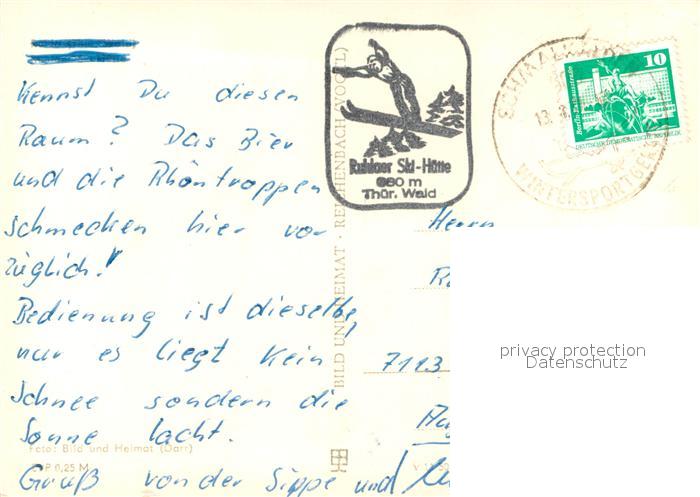 Kennst Du diesen
Raum? Das Bier
und die Rhöntroppen
schmecken hier vor
züglich!
Bedienung ist dieselbe,
nur es liegt kein
Schnee sondern die
Sonne lacht.
Gruß von der Sippe und
Foto: Bild und Heimat (Darr)
P 0,25 M
BILD UND HEIMAT · REICHENBACH (VOGTL)
Ruhlaer Ski-Hütte
660 m
Thür. Wald
SCHMALKALDEN
13.3.
WINTERSPORTGEB
10
DEUTSCHE DEMOKRATISCHE REPUBLIK
Herrn
7113
privacy protection
Datenschutz